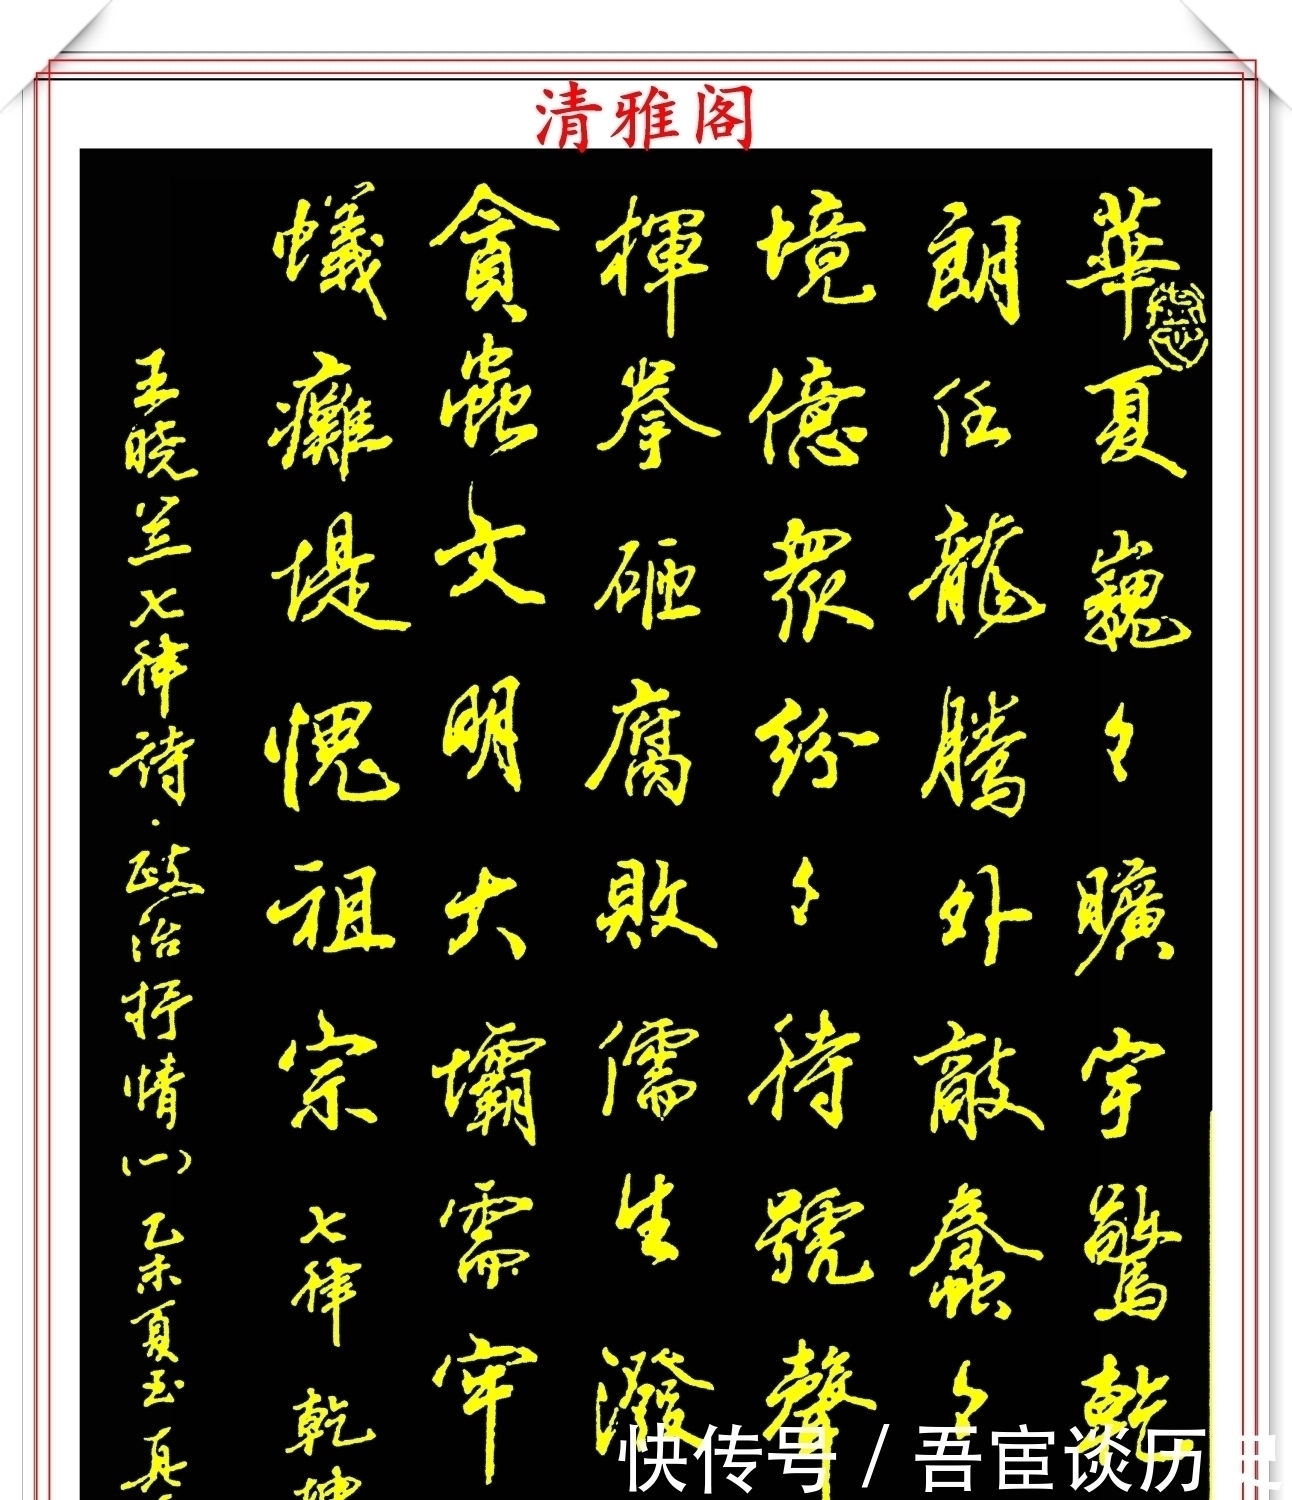 清雅阁
華夏巍々曠宇驚乾
朗任龍騰外敲蠢々
境億眾紛々待號聲
揮拳砸腐敗儒生潑
貪蟲文明大壩需牢
蟻癱堤愧祖宗 七律 乾坤
王晓兰七律诗·政治抒情(一) 乙未夏玉真
快传号 / 吾宦谈历史